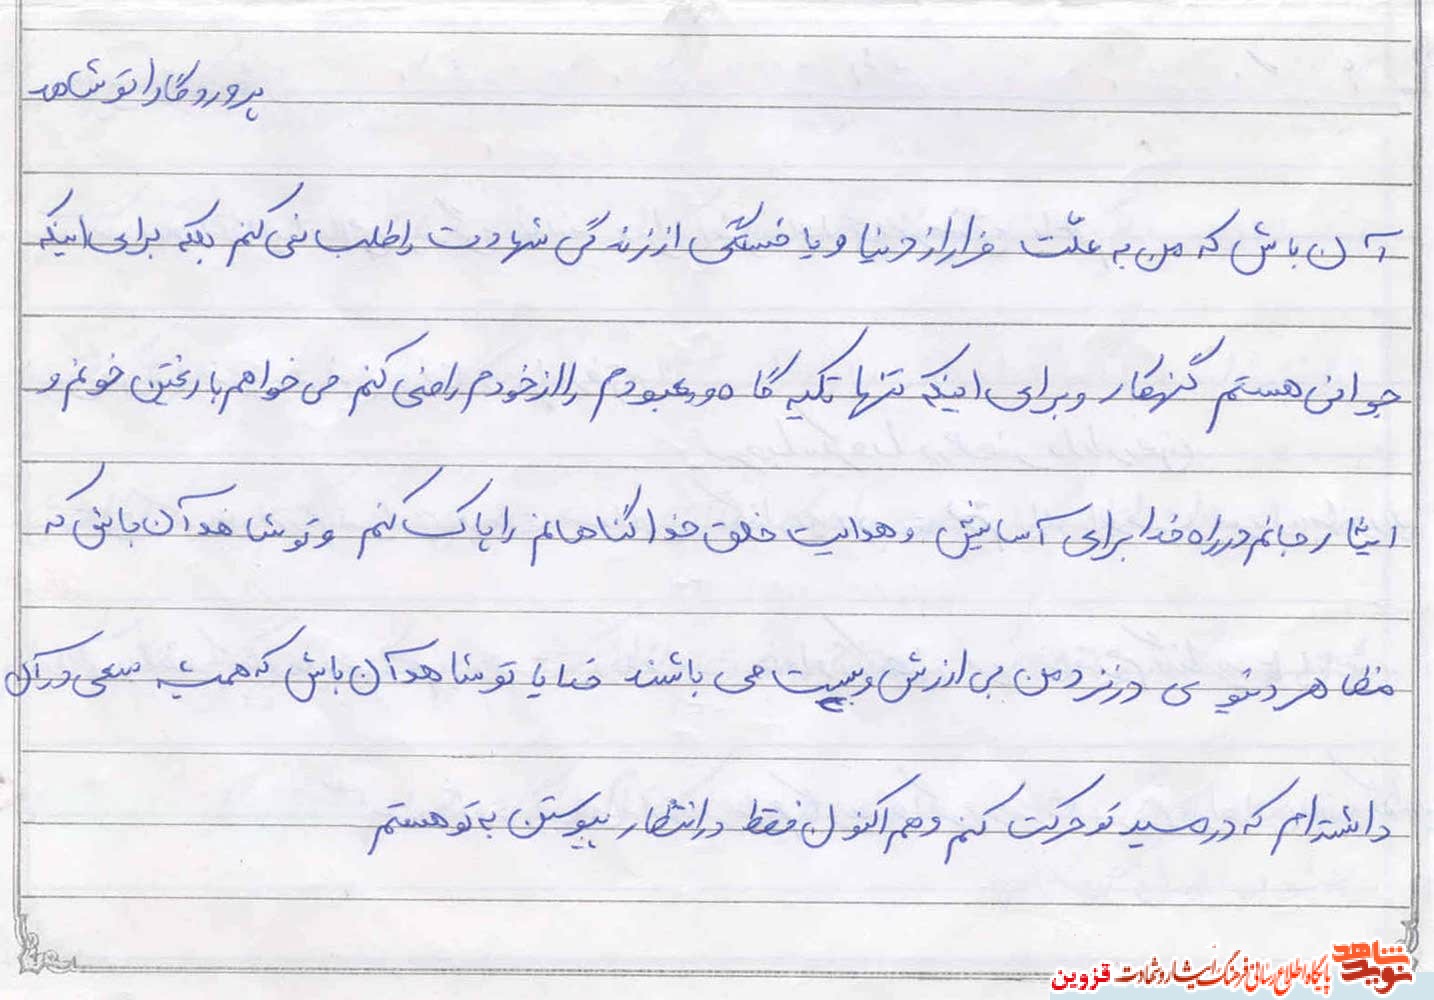 پروردگارا تو شاهد
آن باش که من به علّت فرار از دنیا و یا خستگی از زندگی شهادت را طلب نمی کنم بلکه برای اینکه
جوانی هستم گنهکار و برای اینکه تنها تکیه گاه و معبودم را از خودم راضی کنم می خواهم با ریختن خونم و
ایثار جانم در راه خدا برای آسایش و هدایت خلق خدا گناهانم را پاک کنم و تو شاهد آن باش که
مظاهر دنیوی در نزد من بی ارزش و پست می باشند خدایا تو شاهد آن باش که همیشه سعی در آن
داشته ام که در مسیر تو حرکت کنم و هم اکنون فقط در انتظار پیوستن به تو هستم
نوید شاهد پایگاه اطلاع رسانی فرهنگ ایثار و شهادت قزوین